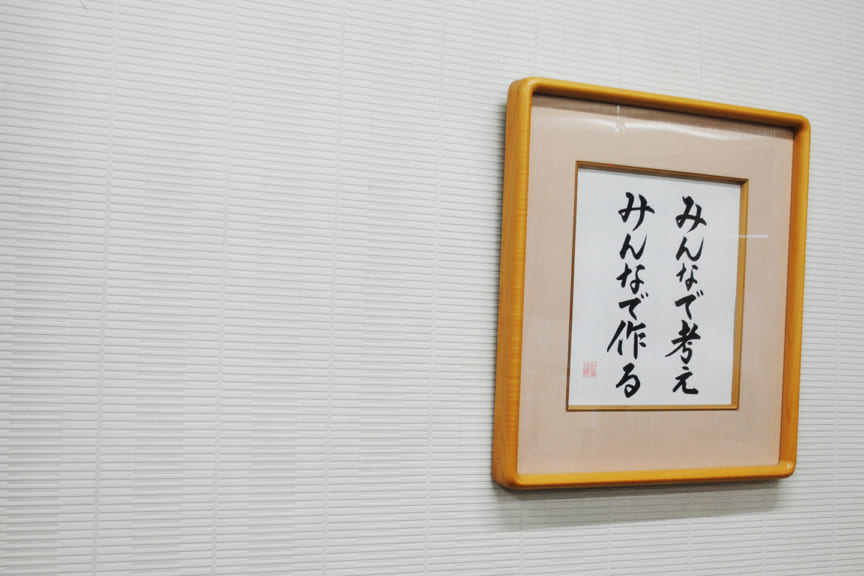 みんなで考え
みんなで作る